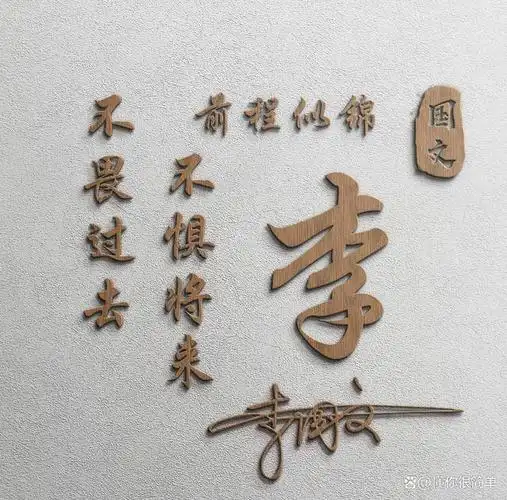 前程似锦
国文
李
不惧将来
不畏过去
李国文